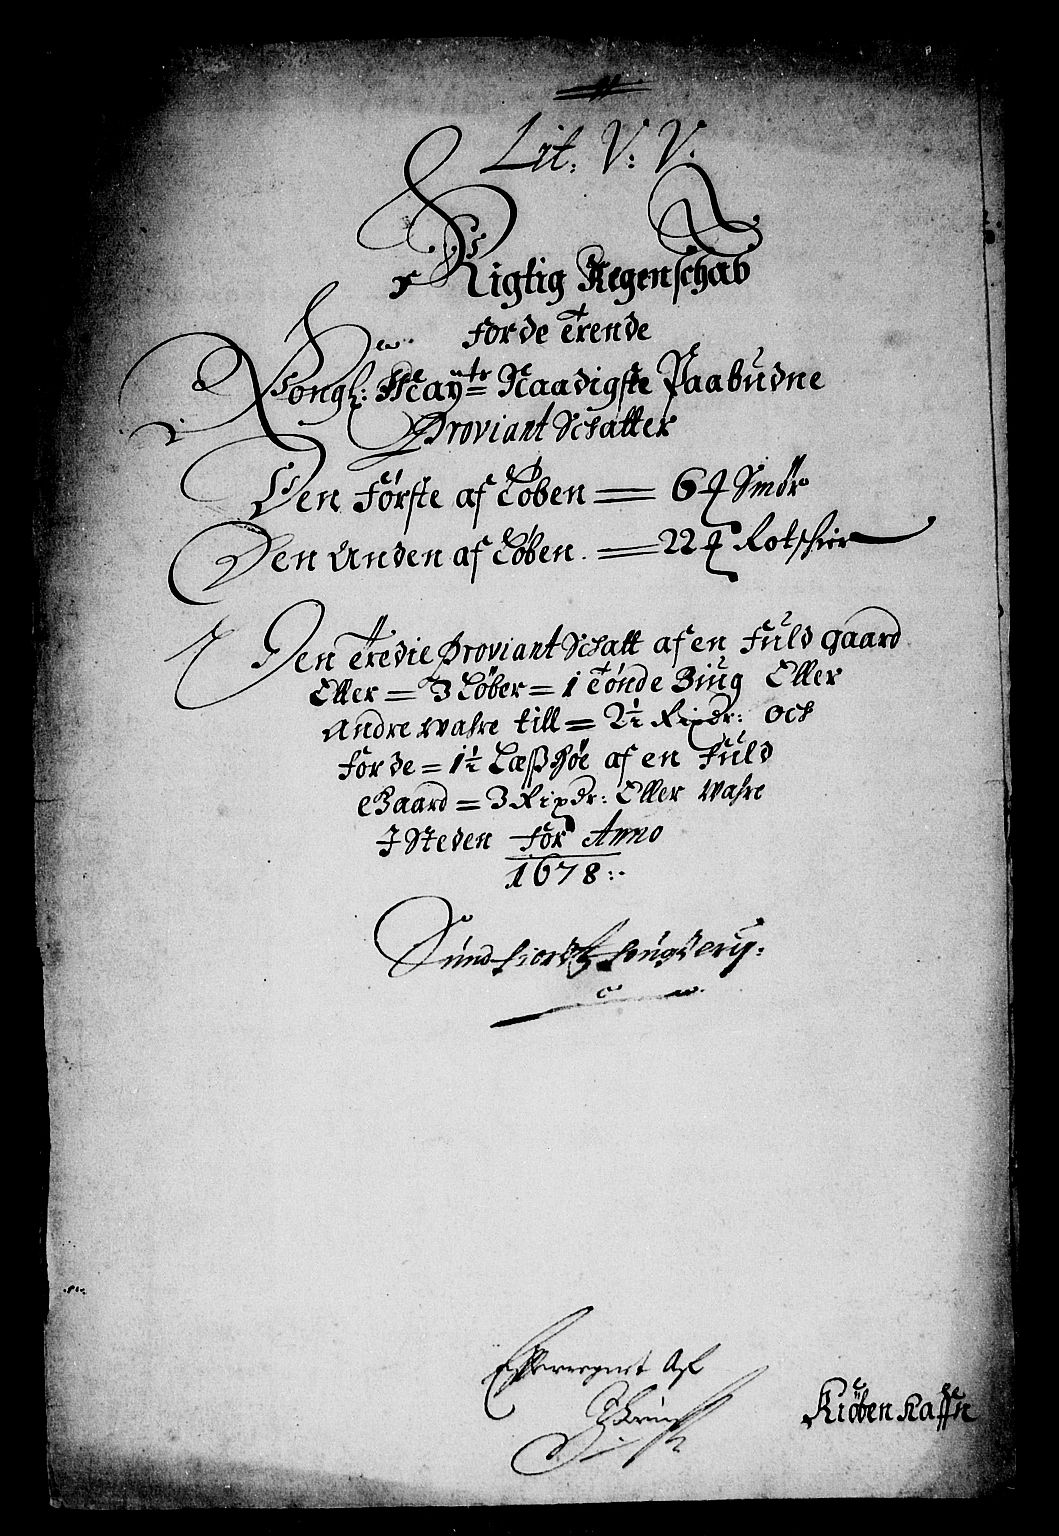 Lit: V: V:
Rigtig Regenschab
for de Trende
Kongl: Mayts Naadigste Paabudne
Proviant Schatter
Den Første af Løben = 6 ℔ Smør
Den Anden af Løben. = 22 ℔ Rotschier
Den Tredie Proviant Schatt af en Fuld gaard
Eller = 3 Løber = 1 Tønde Biug Eller
Andre wahre till = 2½ Rixdr: och
for de = 1½ Læsß Høe af en Fuld
Gaard = 3 Rixdr: Eller wahre
I Steden for Anno
1678:.
Sundfiords fougderij:
Efterregnet Af
Kiøbenhaffn